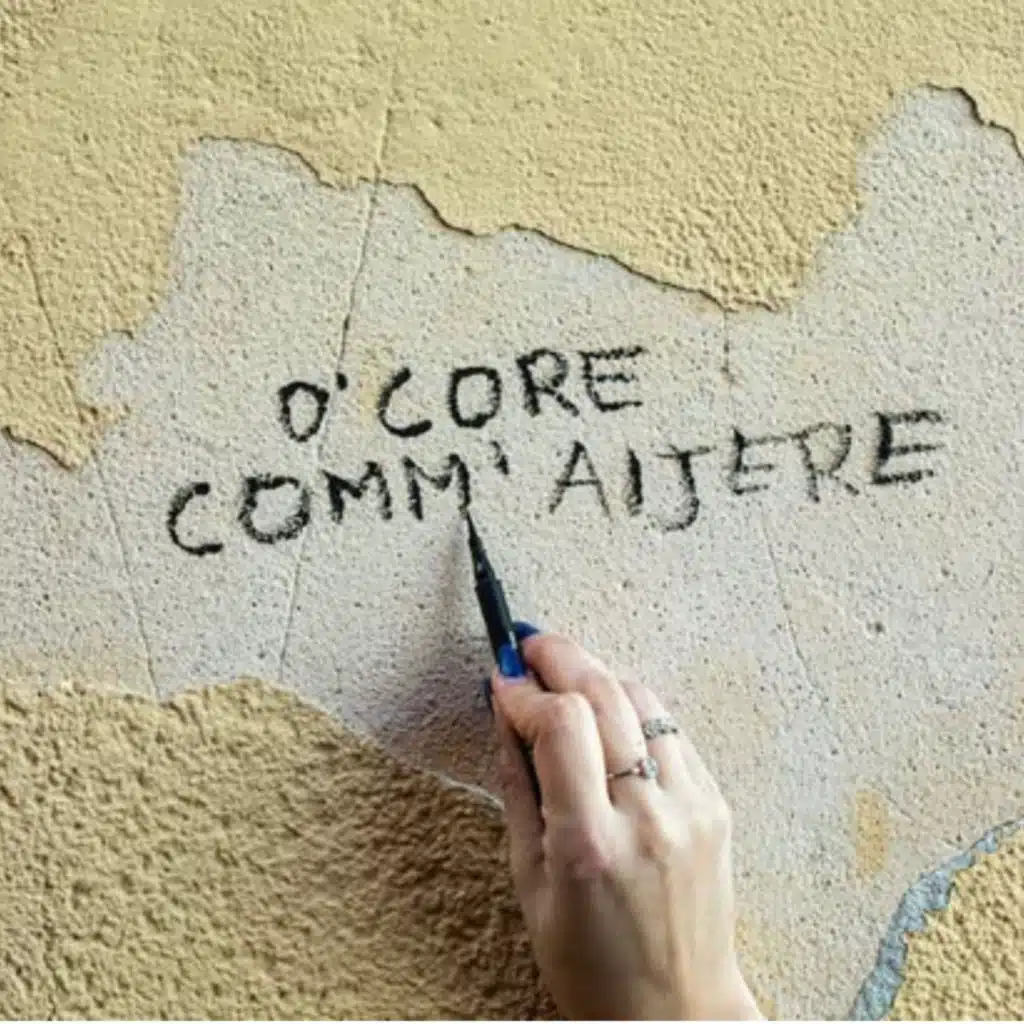 O' CORE
COMM' AIJERE